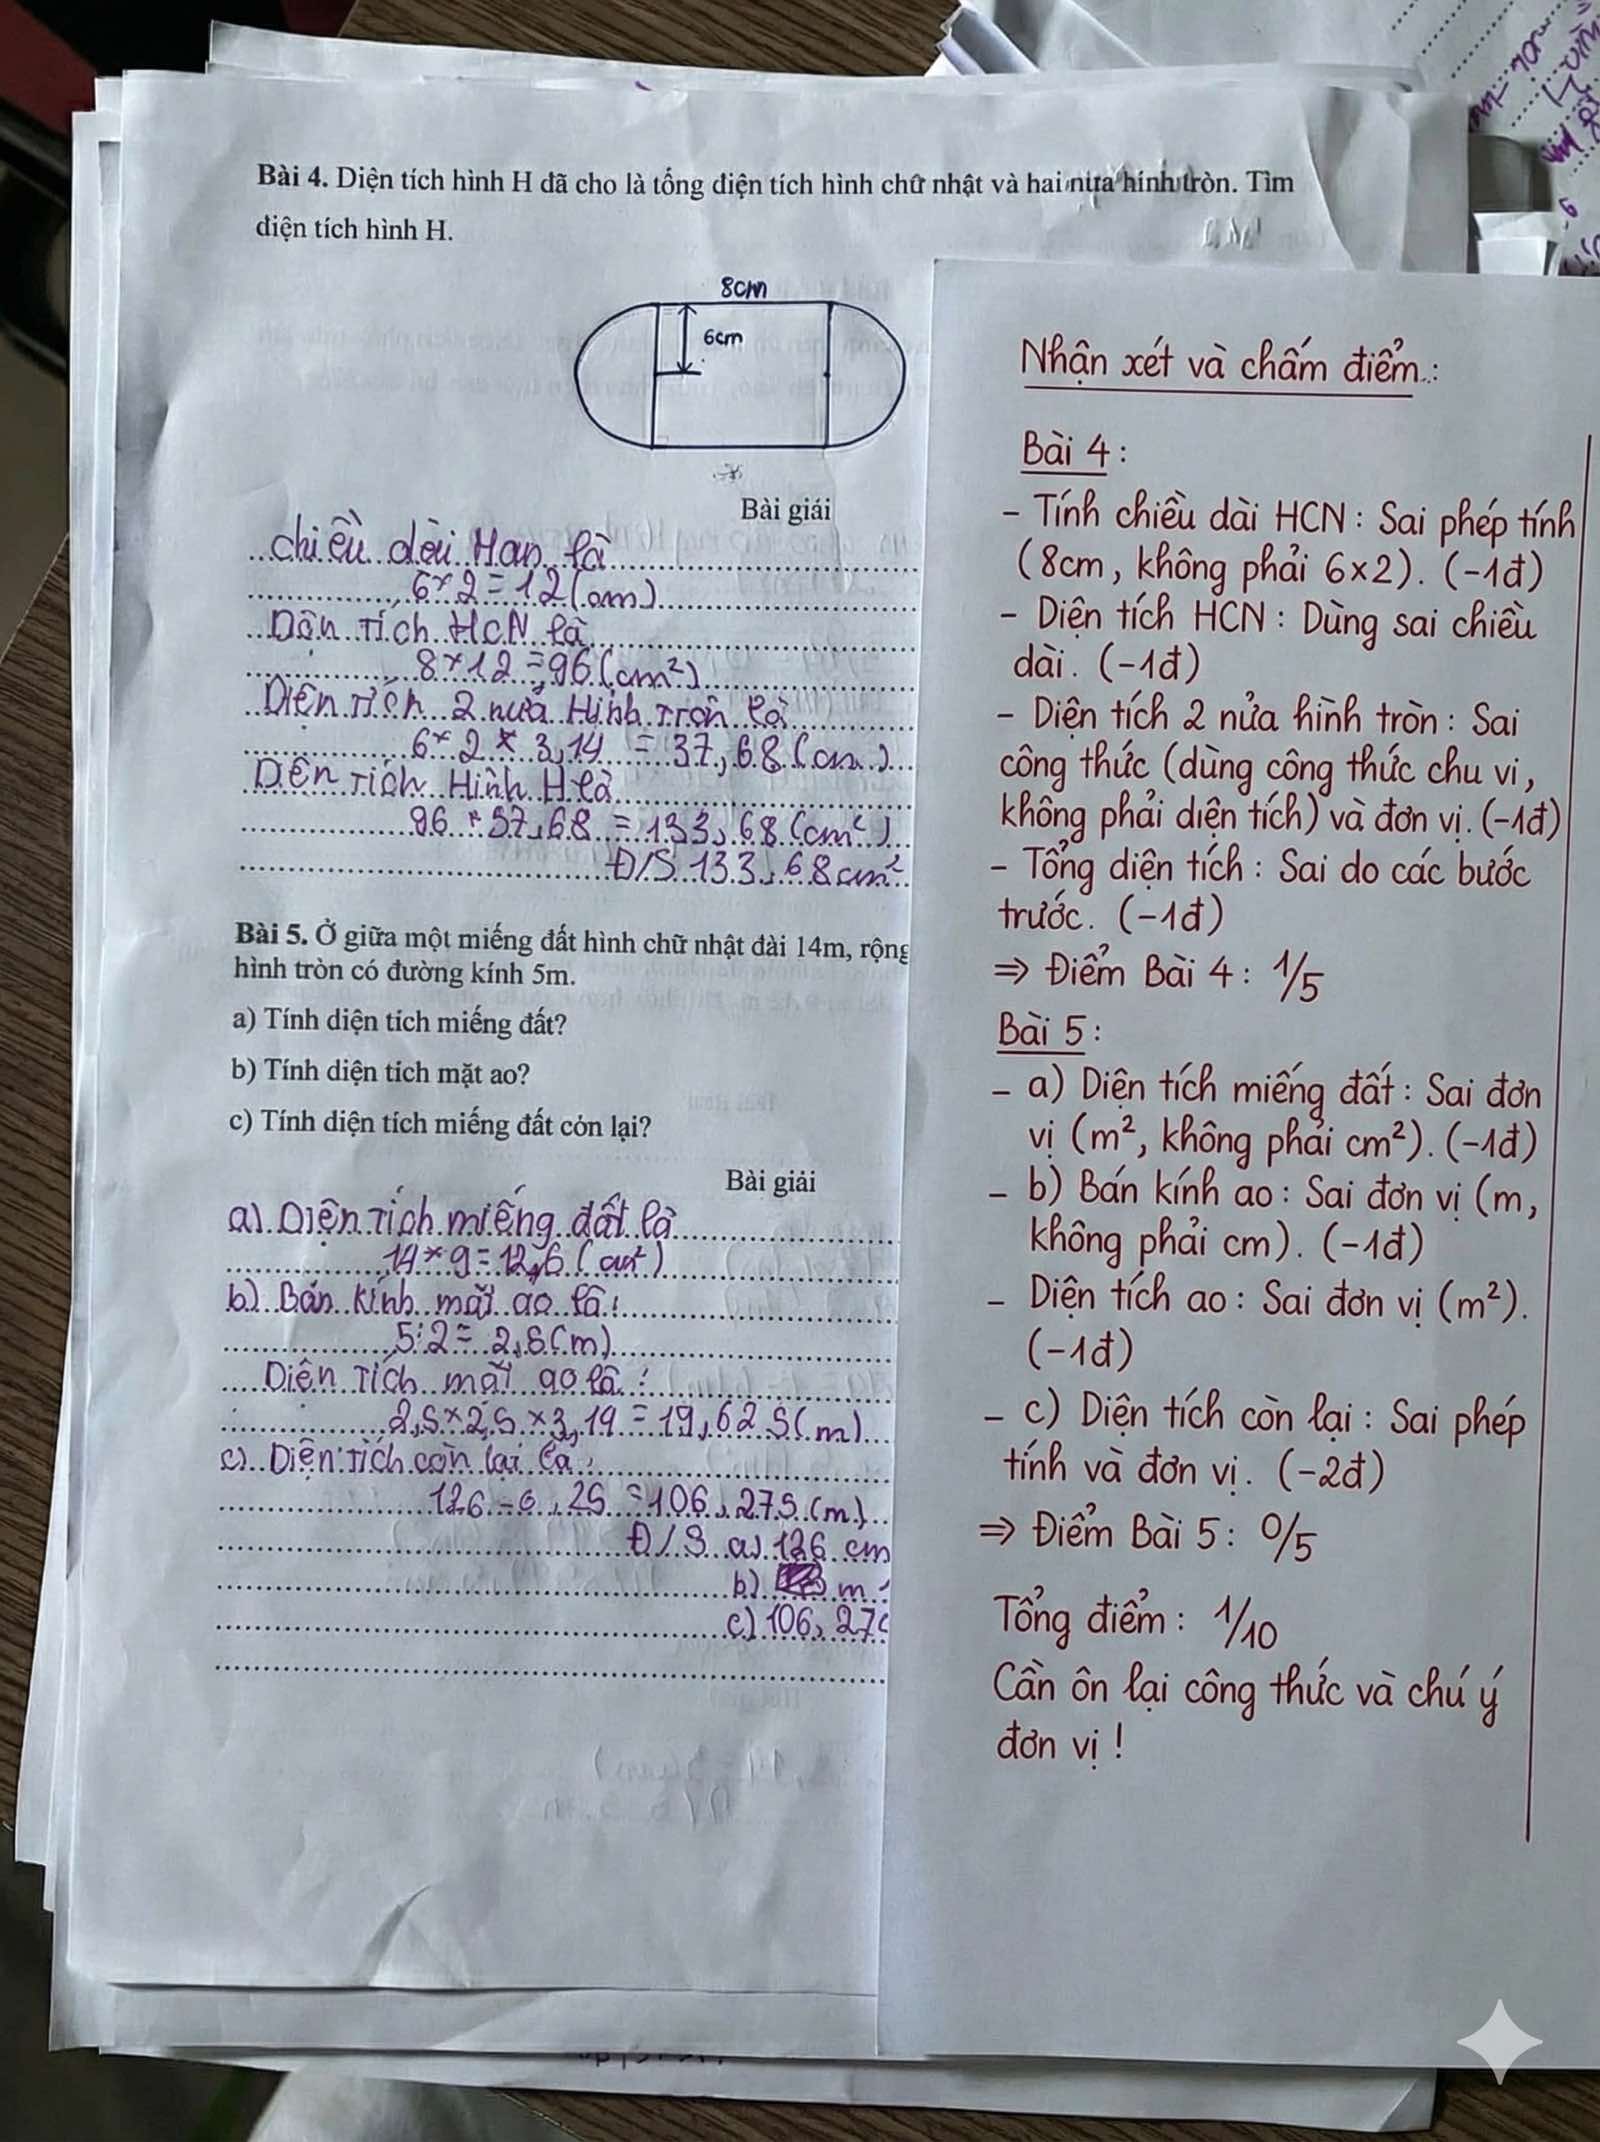 Bài 4. Diện tích hình H đã cho là tổng diện tích hình chữ nhật và hai nửa hình tròn. Tìm
diện tích hình H.
8cm
6cm
Bài giải
chiều dài Han là
6 × 2 = 12 (cm)
Diện Tích HCN là
8 × 12 = 96 (cm²)
Diện Tích 2 nửa Hình Tròn là
6 × 2 × 3,14 = 37,68 (cm)
Diện Tích Hình H là
96 + 37,68 = 133,68 (cm²)
Đ/S 133,68 cm²
Bài 5. Ở giữa một miếng đất hình chữ nhật dài 14m, rộng
hình tròn có đường kính 5m.
a) Tính diện tích miếng đất?
b) Tính diện tích mặt ao?
c) Tính diện tích miếng đất còn lại?
Bài giải
a) Diện Tích miếng đất là
14 × 9 = 12,6 (cm²)
b) Bán kính mặt ao là:
5:2 = 2,5 (m)
Diện Tích mặt ao là:
2,5 × 2,5 × 3,14 = 19,625 (m)
c) Diện Tích còn lại là
126 - 6,25 = 106,275 (m)
Đ/S a) 126 cm
b) m
c) 106, 27
Nhận xét và chấm điểm:
Bài 4:
- Tính chiều dài HCN: Sai phép tính
(8cm, không phải 6×2). (-1đ)
- Diện tích HCN: Dùng sai chiều
dài. (-1đ)
- Diện tích 2 nửa hình tròn: Sai
công thức (dùng công thức chu vi,
không phải diện tích) và đơn vị. (-1đ)
- Tổng diện tích: Sai do các bước
trước. (-1đ)
⇒ Điểm Bài 4: 1/5
Bài 5:
- a) Diện tích miếng đất: Sai đơn
vị (m², không phải cm²). (-1đ)
- b) Bán kính ao: Sai đơn vị (m,
không phải cm). (-1đ)
- Diện tích ao: Sai đơn vị (m²).
(-1đ)
- c) Diện tích còn lại: Sai phép
tính và đơn vị. (-2đ)
⇒ Điểm Bài 5: 0/5
Tổng điểm: 1/10
Cần ôn lại công thức và chú ý
đơn vị!